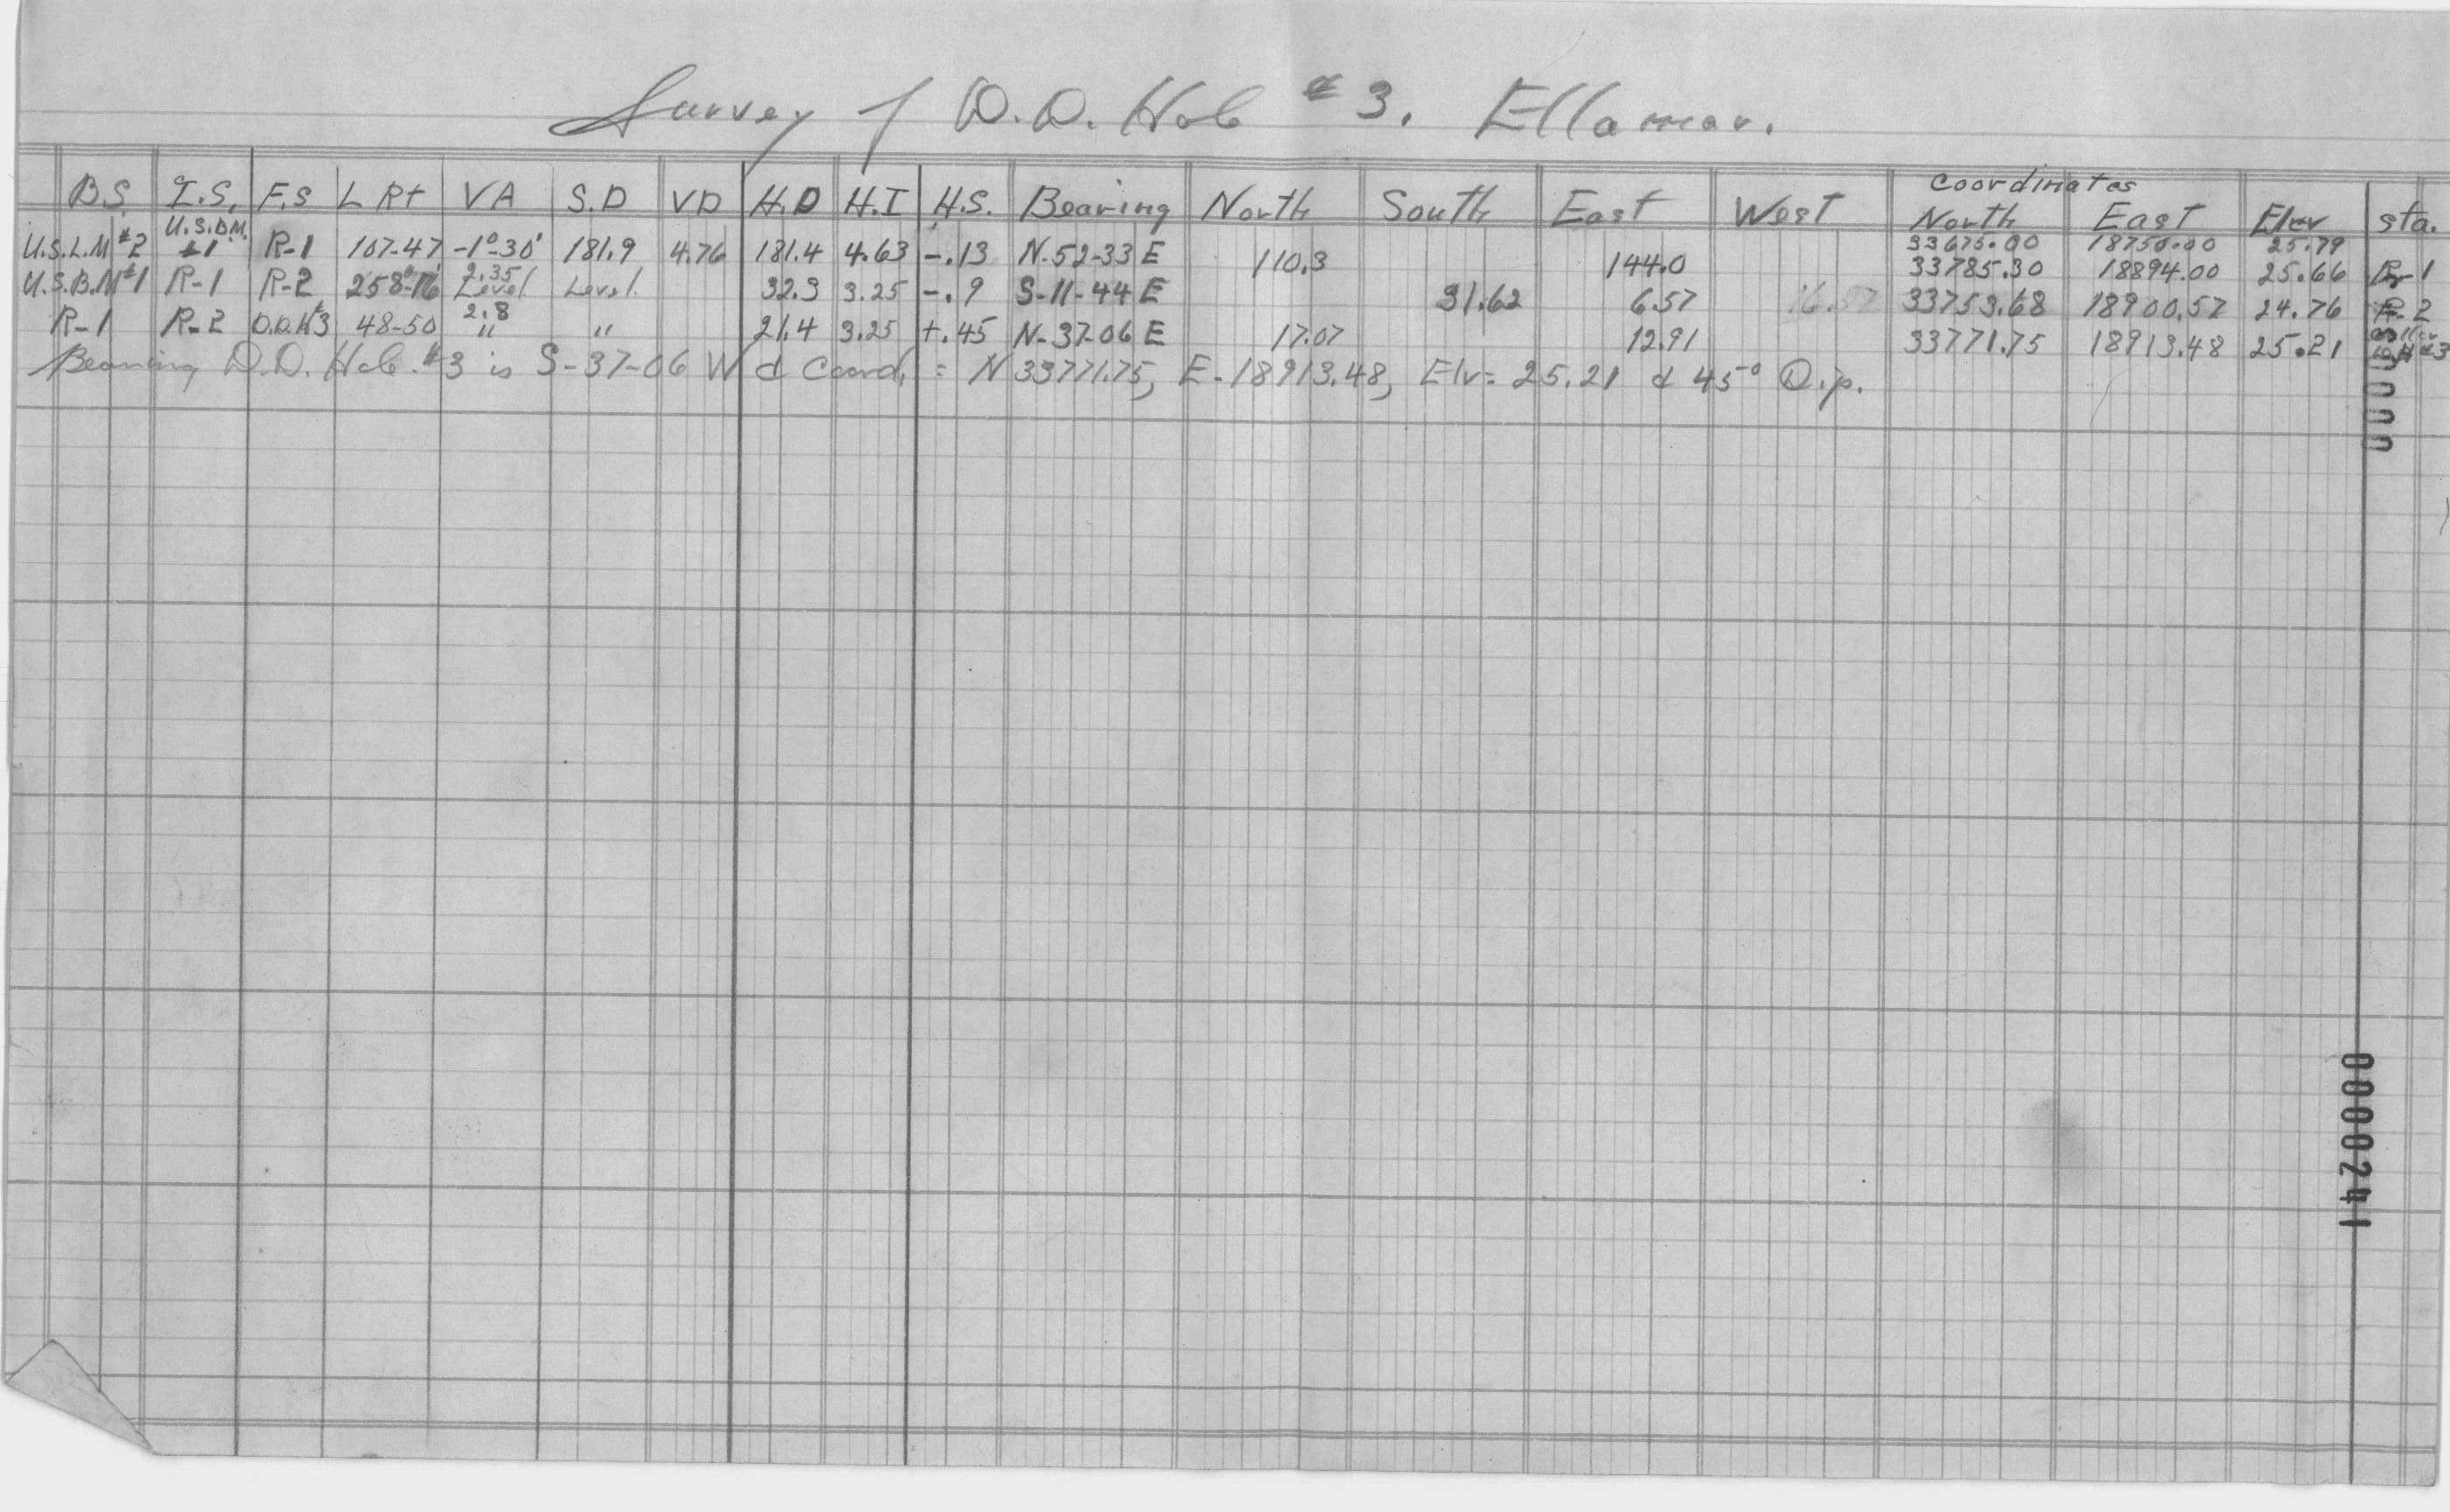 Survey of D.D. Hole #3. Ellamar.
Coordinates
B.S. I.S. F.S L Rt VA S.D VD H.D H.I H.S. Bearing North South East West North East Elev sta.
U.S.B.M. 33675.00 18750.00 25.79
U.S.L.M #2 #1 R-1 107-47 -1°-30' 181.9 4.76 181.4 4.63 -.13 N-52-33 E 110.3 144.0 33785.30 18894.00 25.66 R-1
2.35
U.S.B.M #1 R-1 R-2 258°-16' Level Level. 32.3 3.25 -.9 S-11-44 E 31.62 6.57 16.57 33753.68 18900.57 24.76 R-2
2.8
R-1 R-2 D.D.H #3 48-50 " " 21.4 3.25 +.45 N-37-06 E 17.07 12.91 33771.75 18913.48 25.21 Coller DH #3
Bearing D.D. Hole #3 is S-37-06 W & Coord. = N 33771.75, E-18913.48, Elv= 25.21 & 45° Dip.
0000241